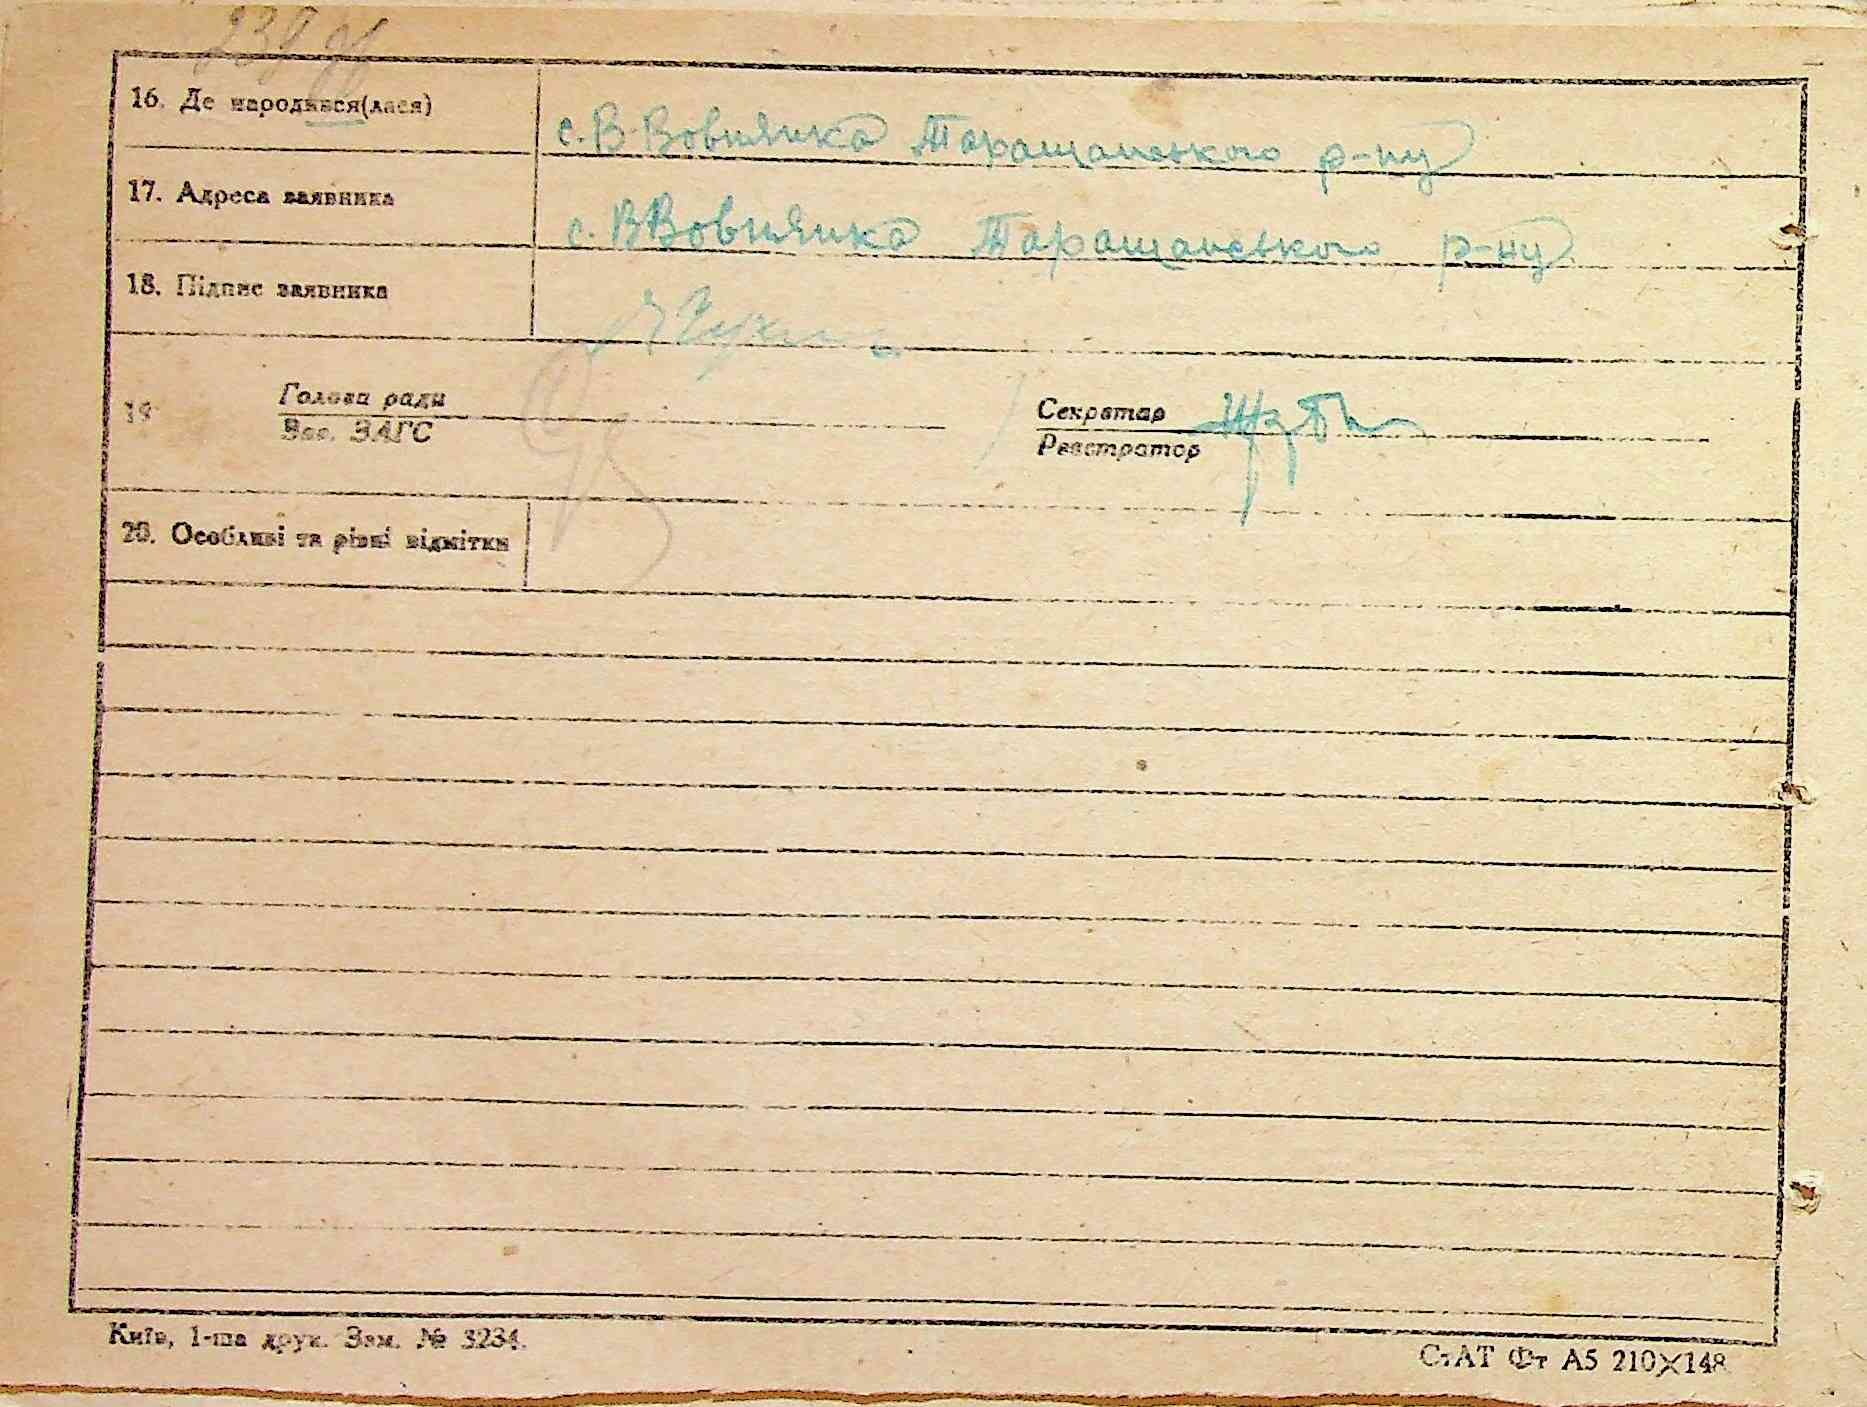 239
16. Де народився(лася)
с. В-Вовнянка Таращанського р-ну
17. Адреса заявника
с. ВВовнянка Таращанського р-ну
18. Підпис заявника
19
Голова ради
Зав. ЗАГС
Секретар
Реєстратор
20. Особливі та різні відмітки
Київ, 1-ша друк. Зам. № 3234.
СтАТ Фт А5 210×148